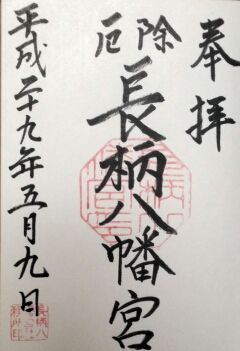 奉拝
厄除
長柄八幡宮
平成二十九年五月九日